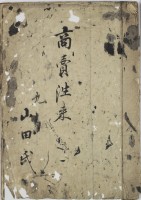 商賣往来
山田氏